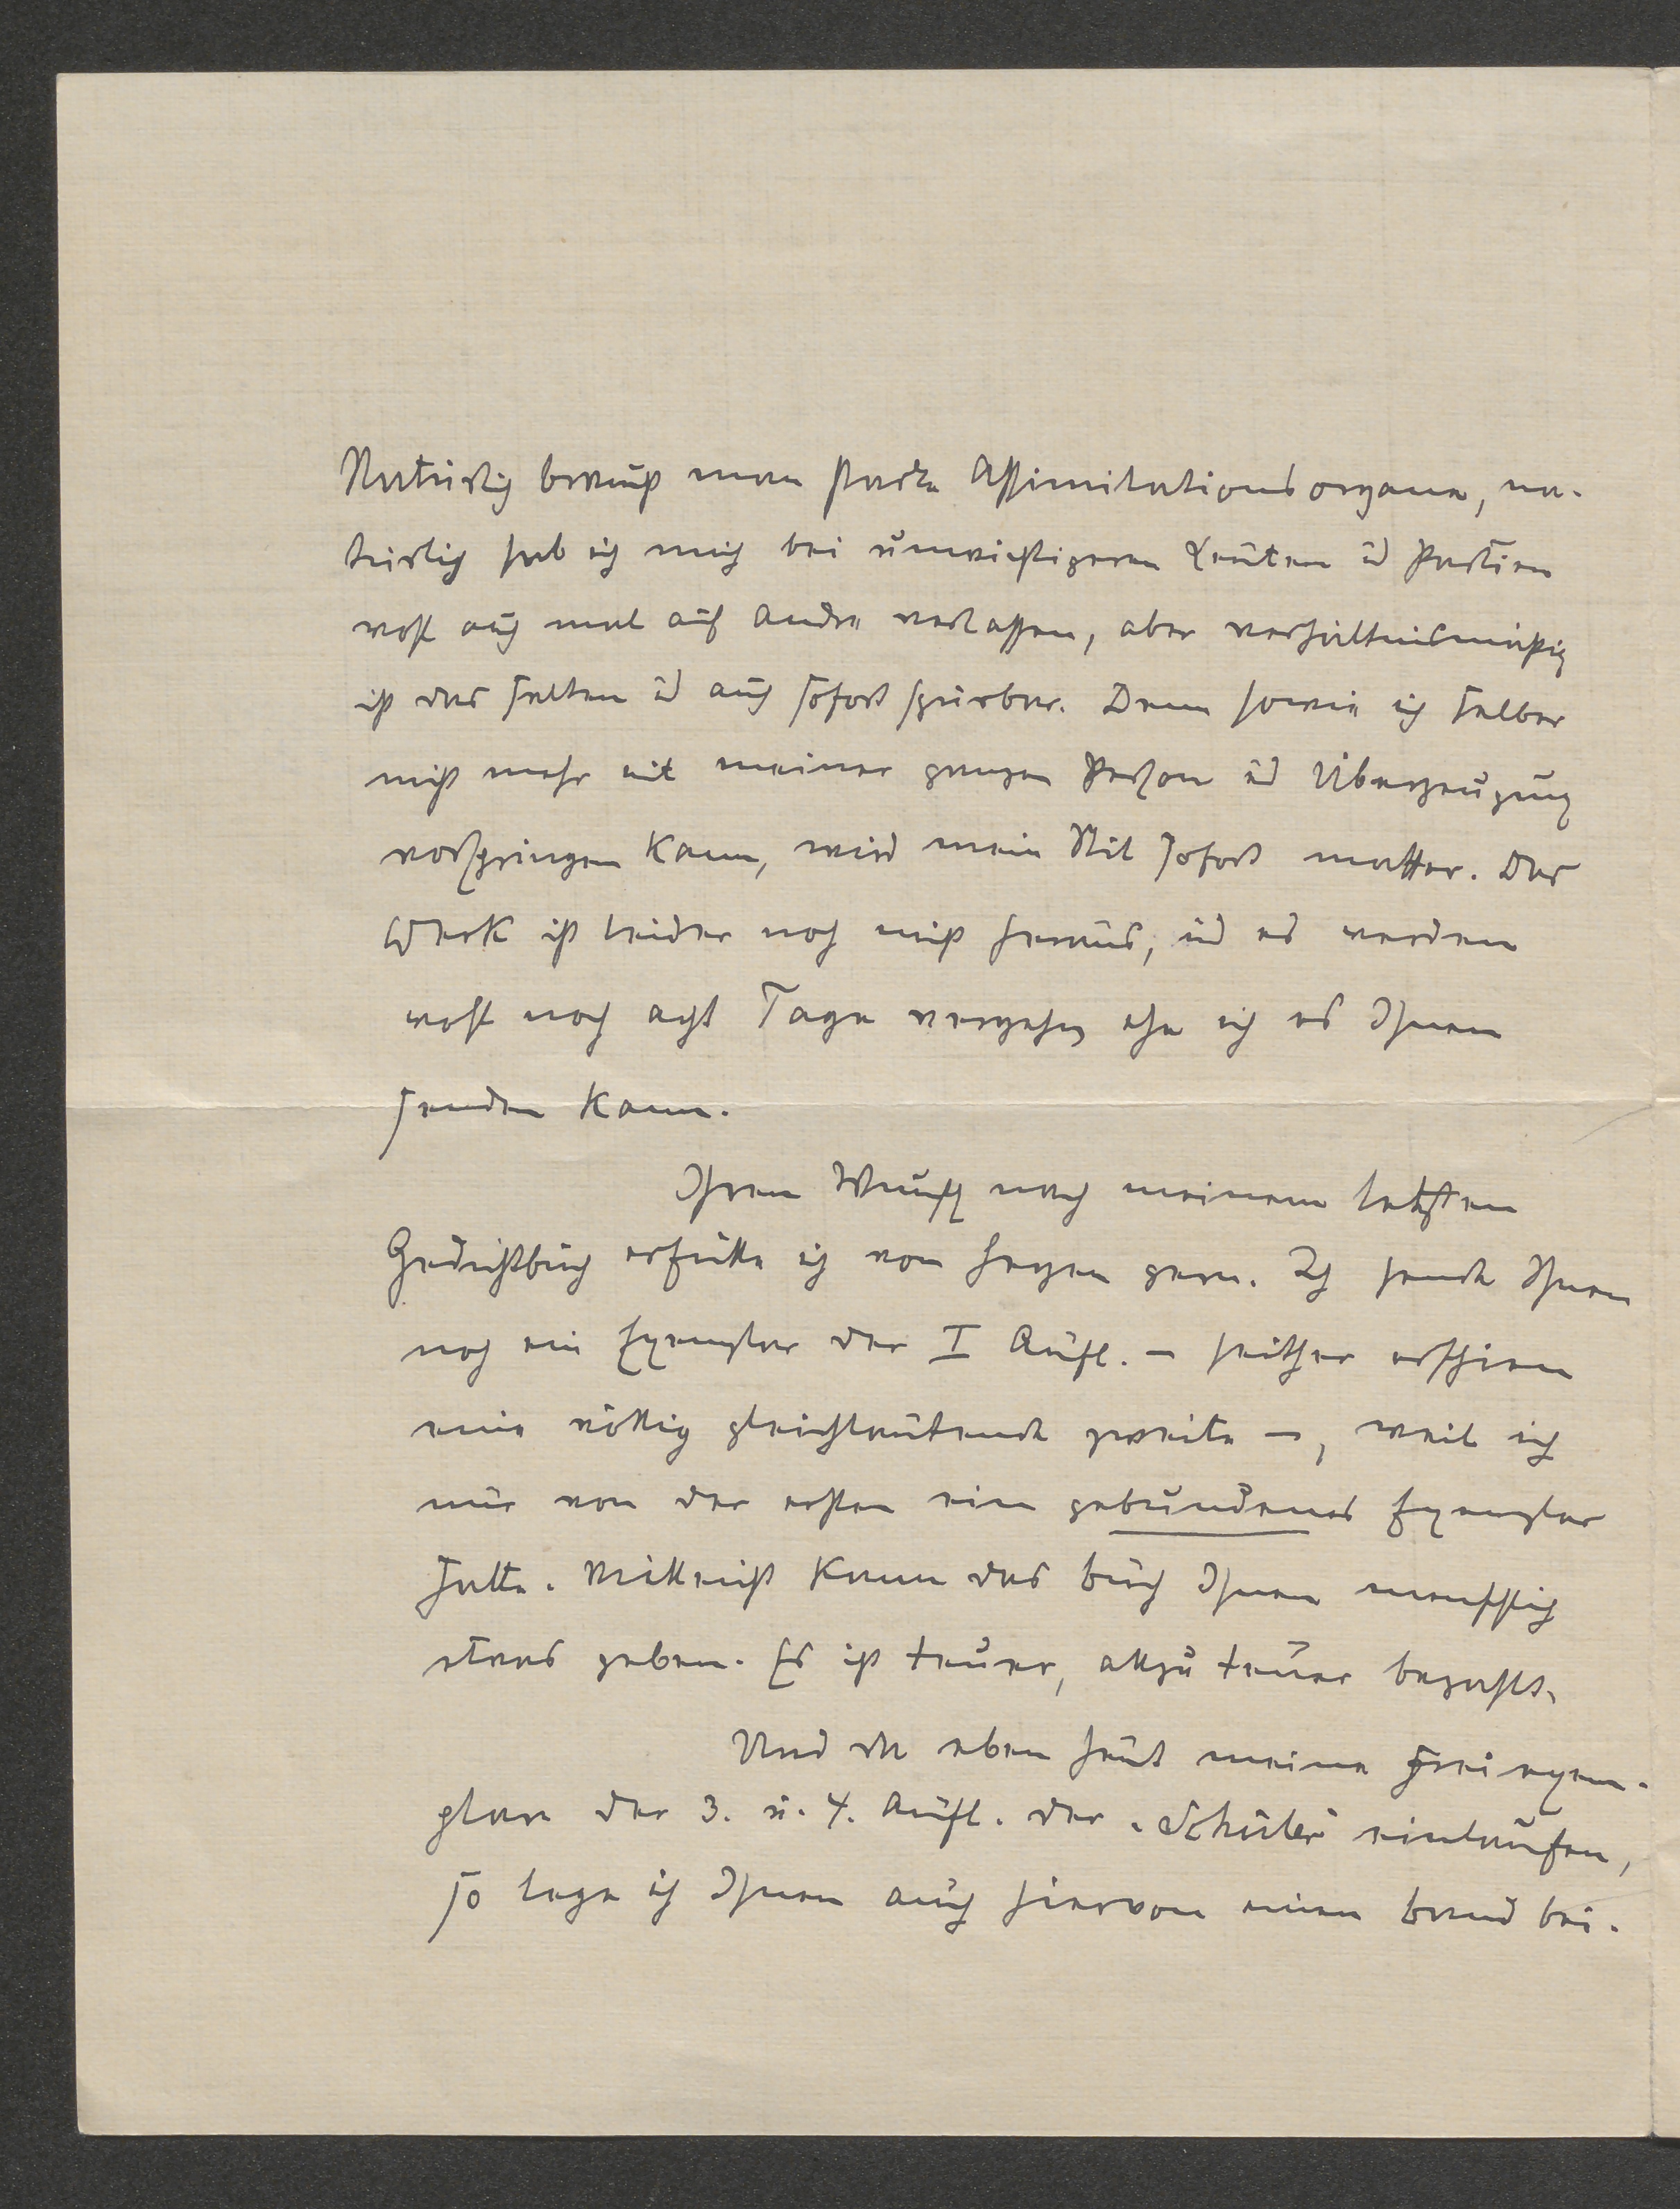 Natürlich braucht man starke Assimilationsorgane, na-
türlich hab ich mich bei unwichtigeren Leuten u Partien
wohl auch mal auf Andre verlassen, aber verhältnismäßig
ist das selten u auch sofort spürbar. Denn sowie ich selber
nicht mehr mit meiner ganzen Person u Überzeugung
vorspringen kann, wird mein Stil sofort matter. Das
Werk ist leider noch nicht heraus, u es werden
wohl noch acht Tage vergehn, ehe ich es Ihnen
senden kann.
Ihren Wunsch nach meinem letzten
Gedichtbuch erfülle ich von Herzen gern. Ich sende Ihnen
noch ein Exemplar der I Aufl. – seither erschien
eine völlig gleichlautende zweite –, weil ich
nur von der ersten ein gebundenes Exemplar
hatte. Vielleicht kann das Buch Ihnen menschlich
etwas geben. Es ist teuer, allzu teuer bezahlt.
Und da eben heut meine Freiexem-
plare der 3. u. 4. Aufl. der "Schüler" einlaufen,
so lege ich Ihnen auch hiervon einen Band bei.